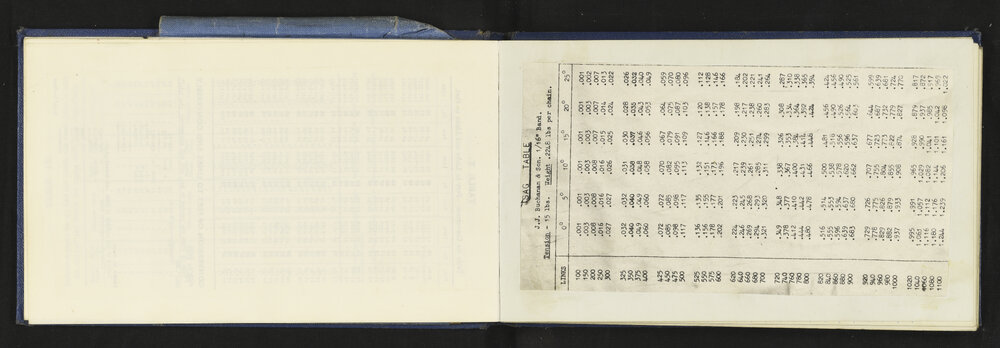 SAG TABLE
J.J. Buchanan & Son. 1/16" Band.
Tension - 15 lbs. Weight .2248 lbs per chain.
LINKS 0° 5° 10° 15° 20° 25°
100 .001 .001 .001 .001 .001 .001
150 .003 .003 .003 .003 .003 .002
200 .008 .008 .008 .007 .007 .007
250 .016 .016 .016 .015 .014 .013
300 .027 .027 .026 .025 .024 .022
325 .032 .032 .031 .030 .028 .026
350 .040 .040 .038 .037 .035 .032
375 .049 .049 .048 .046 .043 .040
400 .060 .060 .058 .056 .053 .049
425 .072 .072 .070 .067 .064 .059
450 .085 .085 .082 .079 .075 .070
475 .098 .098 .095 .091 .087 .080
500 .117 .117 .113 .109 .103 .096
525 .136 .135 .132 .127 .120 .112
550 .156 .155 .151 .146 .138 .128
575 .178 .177 .173 .166 .157 .146
600 .202 .201 .196 .188 .178 .166
620 .224 .223 .217 .209 .198 .184
640 .246 .245 .239 .230 .217 .202
660 .269 .268 .261 .251 .238 .221
680 .294 .293 .285 .274 .260 .241
700 .321 .320 .311 .299 .283 .264
720 .349 .348 .338 .326 .308 .287
740 .378 .377 .367 .353 .334 .310
760 .412 .410 .400 .384 .364 .338
780 .444 .442 .431 .414 .392 .365
800 .480 .478 .466 .448 .424 .394
820 .516 .514 .500 .481 .456 .424
840 .555 .553 .538 .516 .490 .456
860 .596 .594 .578 .556 .526 .490
880 .639 .637 .620 .596 .564 .525
900 .683 .680 .662 .637 .603 .561
920 .729 .726 .707 .677 .644 .599
940 .778 .775 .755 .723 .687 .639
960 .829 .826 .804 .773 .732 .681
980 .882 .879 .855 .822 .779 .724
1000 .937 .933 .908 .874 .827 .770
1020 .995 .991 .965 .928 .879 .817
1040 1.057 1.029 .990 .937 .872
1060 1.116 1.112 1.082 1.041 .985 .917
1080 1.180 1.176 1.144 1.101 1.042 .969
1100 1.244 1.239 1.206 1.161 1.098 1.022